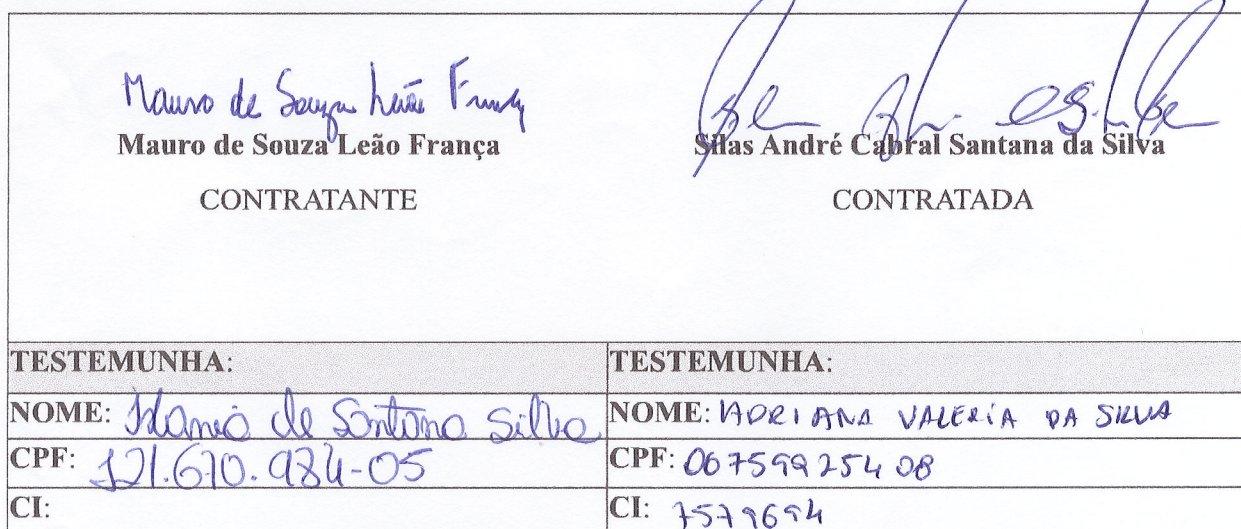 Mauro de Souza Leão França
Mauro de Souza Leão França
CONTRATANTE
Silas André Cabral Santana da Silva
CONTRATADA
TESTEMUNHA: TESTEMUNHA:
NOME: de Santana Silva NOME: ADRIANA VALERIA DA SILVA
CPF: 121.670.984-05 CPF: 06759925408
CI: CI: 7579694